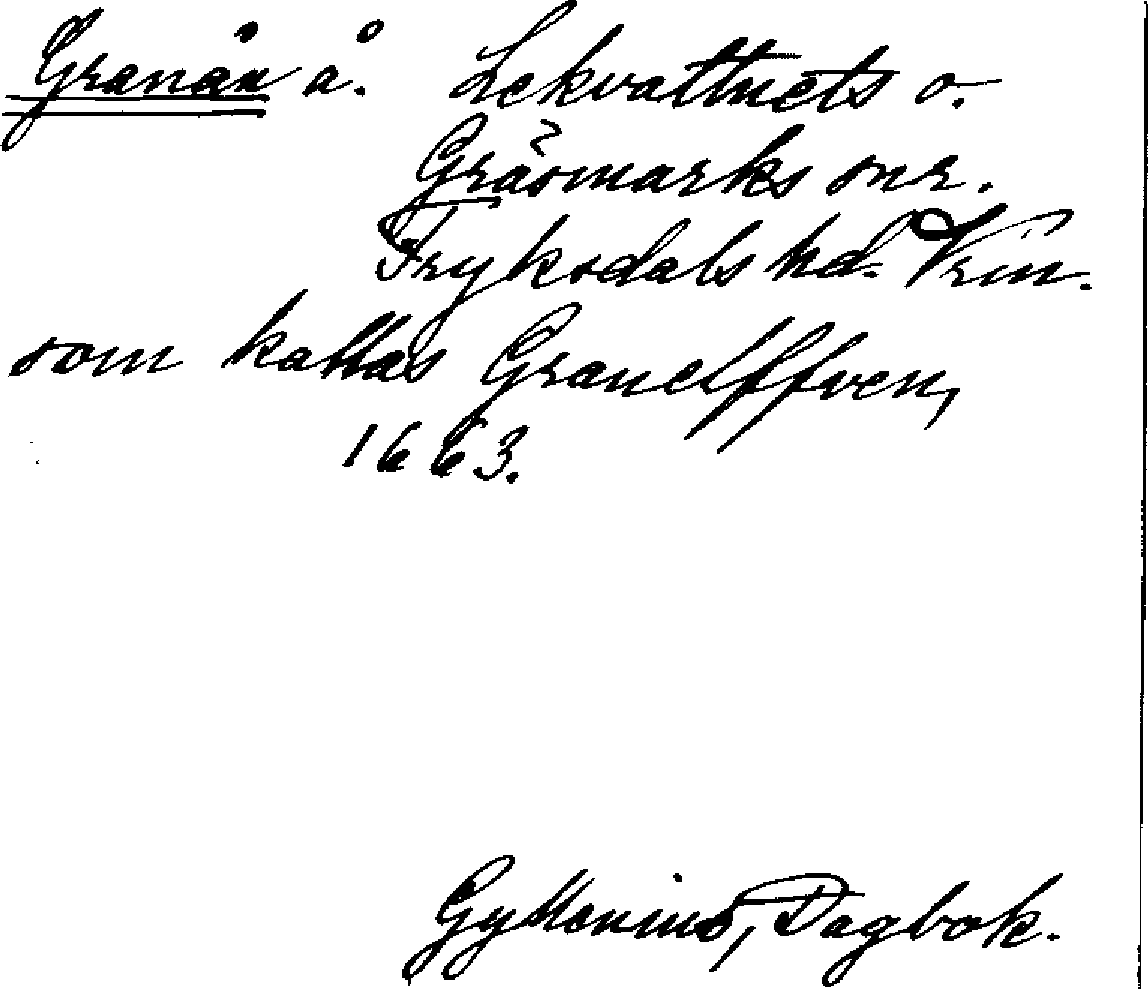 Granån å. Lekvattnets o.
Gräsmarks snr.
Fryksdals hd. Vrm.
som kallas Granelffven,
1663.
Gyllenius, Dagbok.